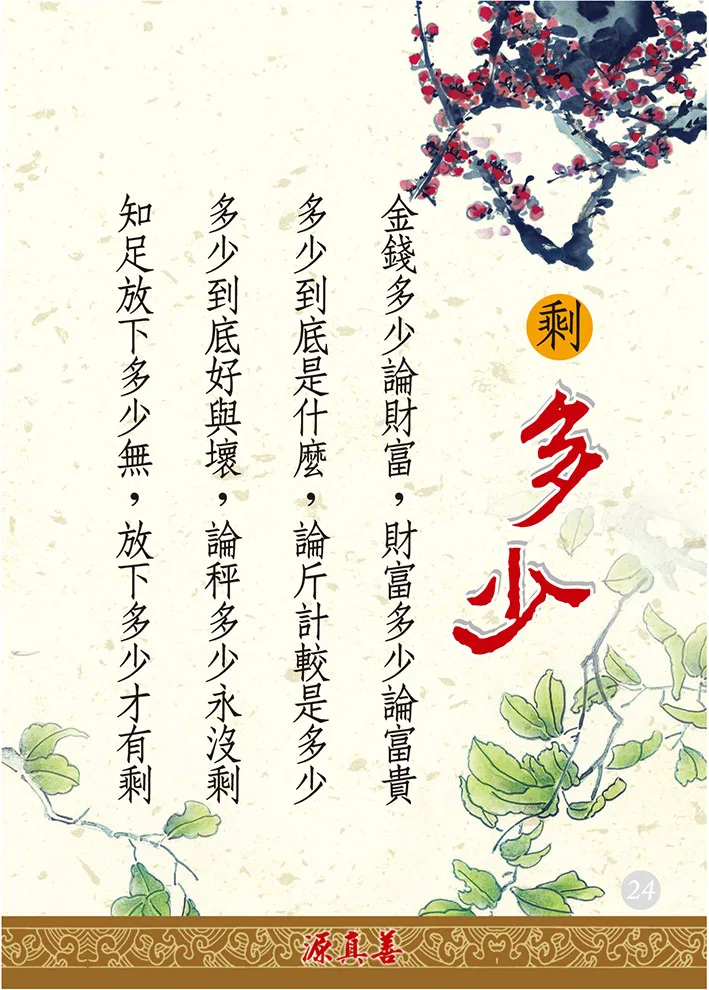 剩
多少
金錢多少論財富，財富多少論富貴
多少到底是什麼，論斤計較是多少
多少到底好與壞，論秤多少永沒剩
知足放下多少無，放下多少才有剩
24
源真善